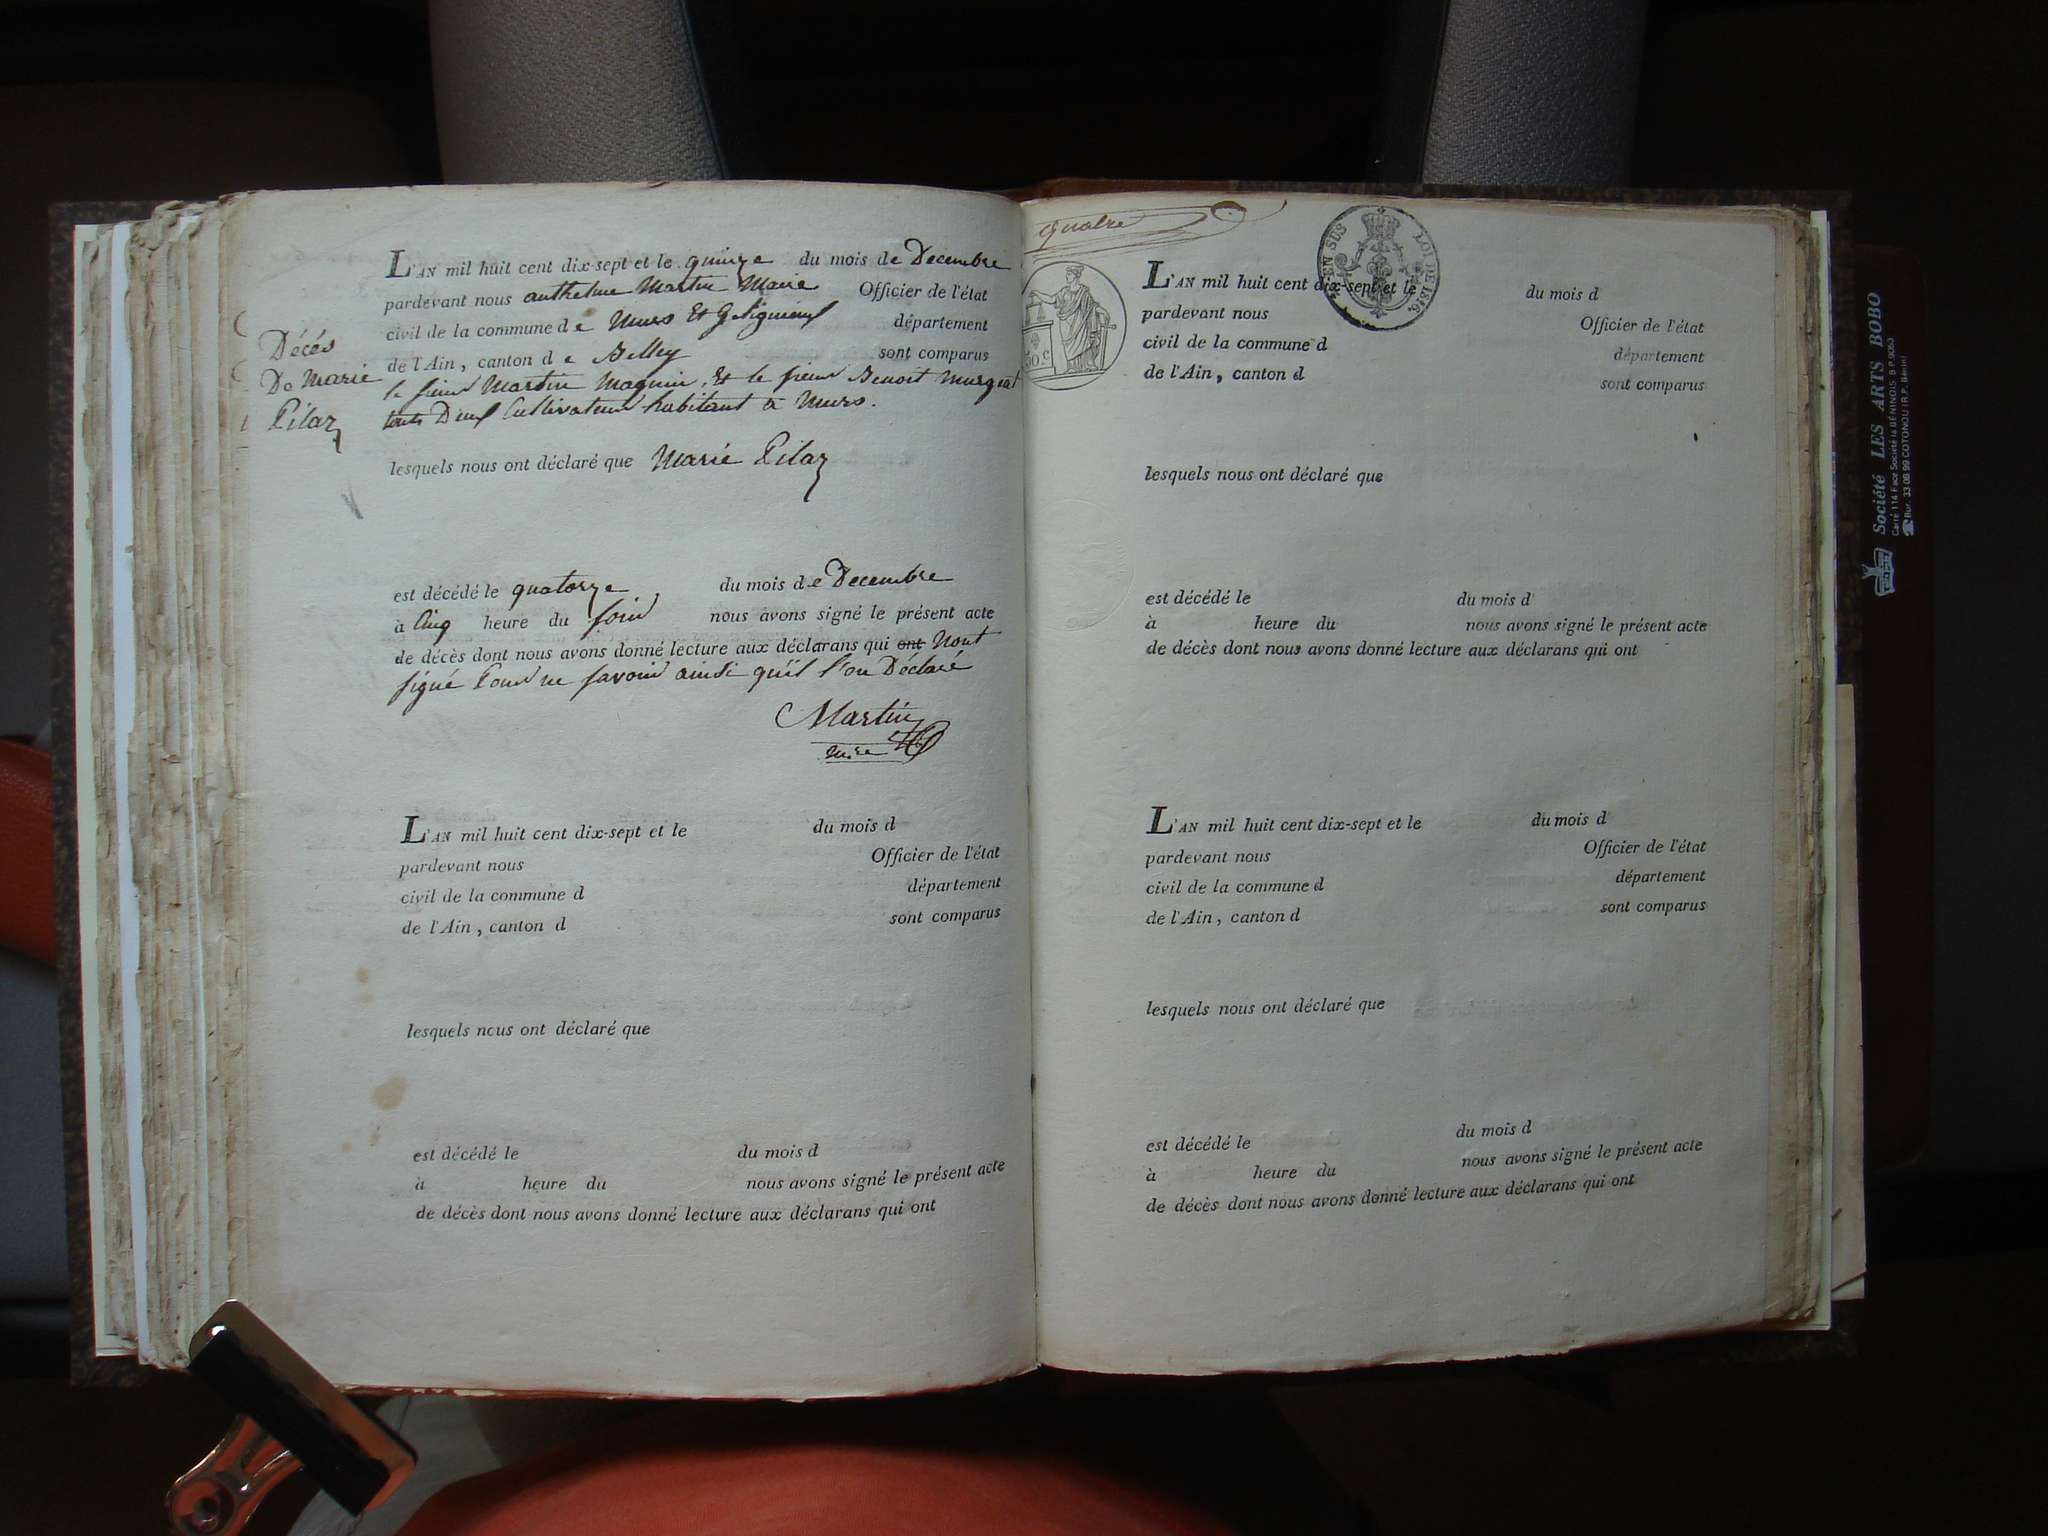 Décès
De Marie
Pilaz
L'AN mil huit cent dix-sept et le quinze du mois de Decembre
pardevant nous anthelme Martin Maire Officier de l'état
civil de la commune de Murs Et Gelignieux département
de l'Ain, canton de Belley sont comparus
le sieur Martin Magnin, Et le sieur Benoit
touts Deux Cultivateurs habitant à Murs.
lesquels nous ont déclaré que Marie Pilaz
est décédé le quatorze du mois de Decembre
à Cinq heure du soir nous avons signé le présent acte
de décès dont nous avons donné lecture aux déclarans qui ont Nont
signé Pour ne savoir ainsi qu'il l'on Déclaré
Martin
L'AN mil huit cent dix-sept et le du mois d
pardevant nous Officier de l'état
civil de la commune d département
de l'Ain, canton d sont comparus
lesquels nous ont déclaré que
est décédé le du mois d
à heure du nous avons signé le présent acte
de décès dont nous avons donné lecture aux déclarans qui ont
quatre
EN SUS LOI DE 1816.
50.C
L'AN mil huit cent dix-sept et le du mois d
pardevant nous Officier de l'état
civil de la commune d département
de l'Ain, canton d sont comparus
lesquels nous ont déclaré que
est décédé le du mois d
à heure du nous avons signé le présent acte
de décès dont nous avons donné lecture aux déclarans qui ont
L'AN mil huit cent dix-sept et le du mois d
pardevant nous Officier de l'état
civil de la commune d département
de l'Ain, canton d sont comparus
lesquels nous ont déclaré que
est décédé le du mois d
à heure du nous avons signé le présent acte
de décès dont nous avons donné lecture aux déclarans qui ont
Société LES ARTS BOBO
Carré 114 Face Société la BÉNINOIS B.P.
Bur. 33 06 99 COTONOU (R.P. Bénin)